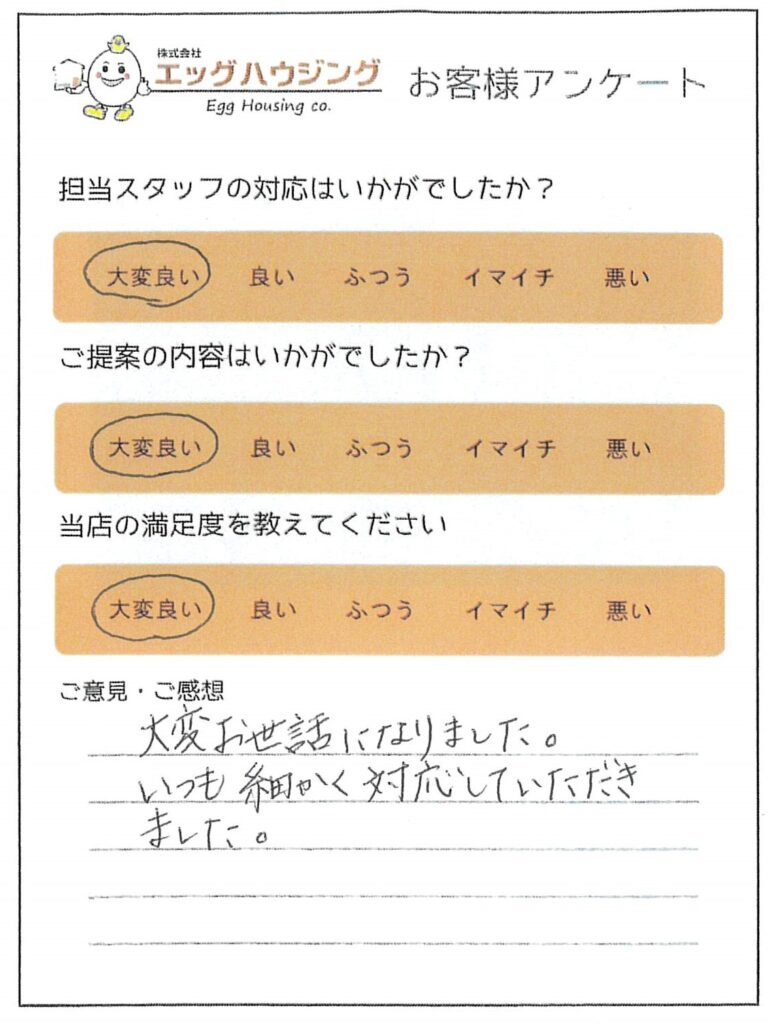 株式会社
エッグハウジング
Egg Housing co.
お客様アンケート
担当スタッフの対応はいかがでしたか？
大変良い 良い ふつう イマイチ 悪い
ご提案の内容はいかがでしたか？
大変良い 良い ふつう イマイチ 悪い
当店の満足度を教えてください
大変良い 良い ふつう イマイチ 悪い
ご意見・ご感想
大変お世話になりました。
いつも細かく対応していただき
ました。